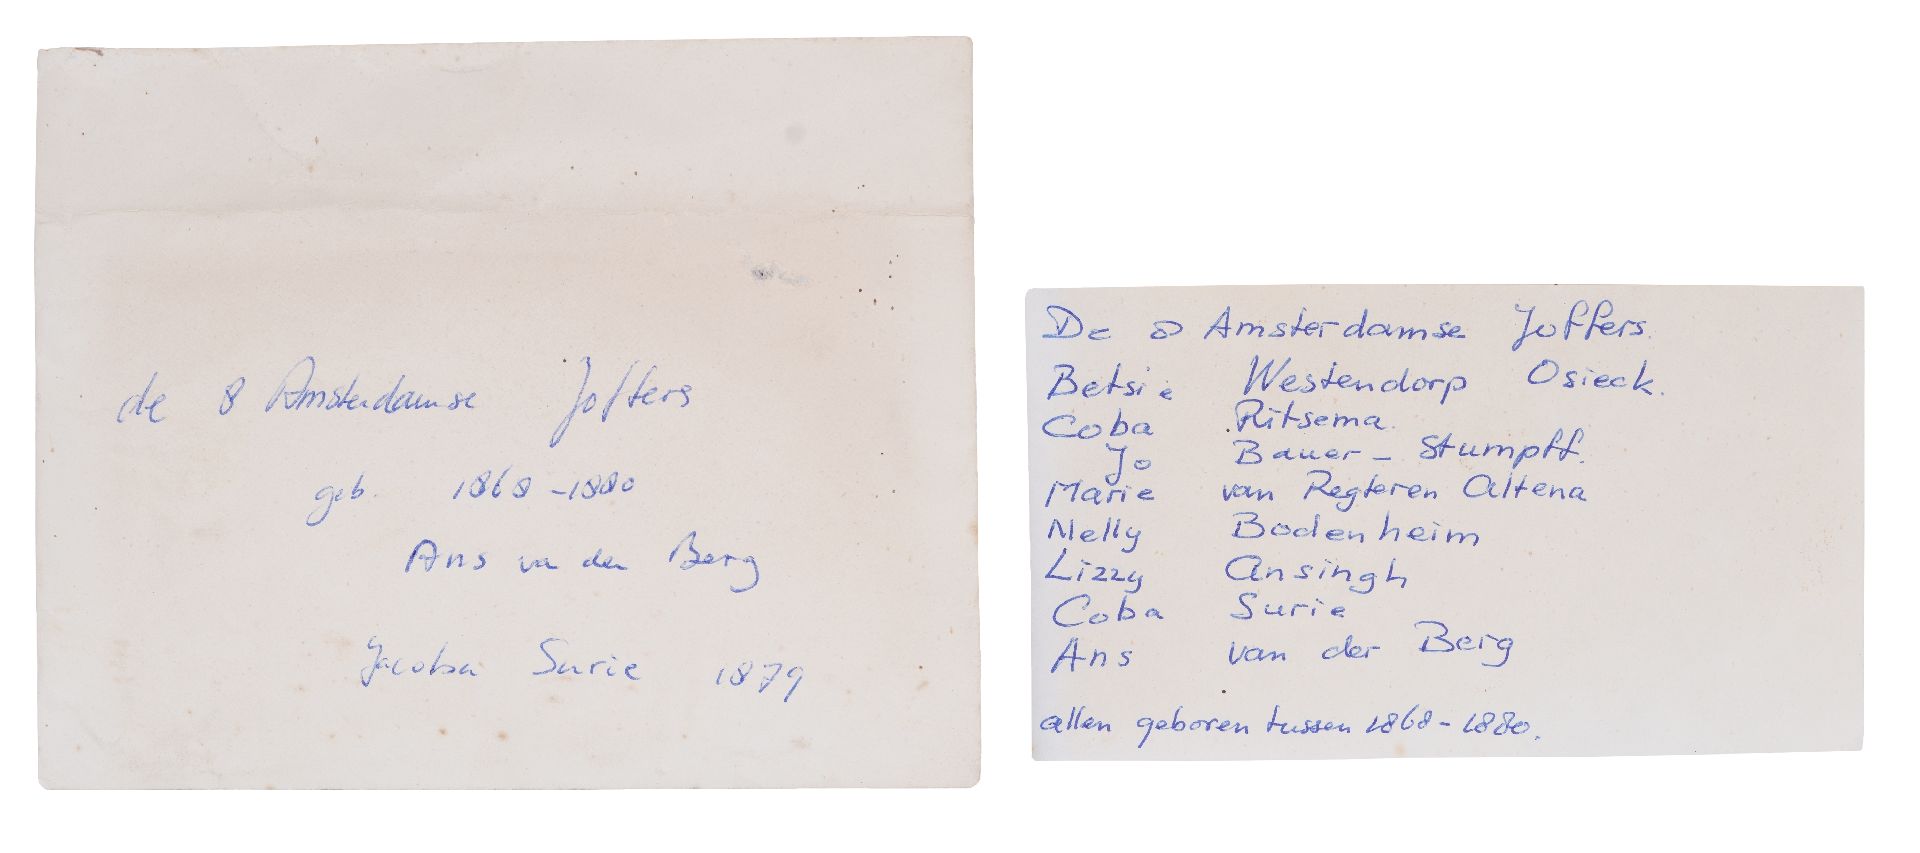 de 8 Amsterdamse Joffers
geb. 1868-1880
Ans va der Berg
Jacoba Surie 1879
De 8 Amsterdamse Joffers.
Betsie Westendorp Osieck.
Coba Ritsema.
Jo Bauer-Stumpff.
Marie van Regteren Altena
Nelly Bodenheim
Lizzy Ansingh
Coba Surie
Ans van der Berg
allen geboren tussen 1868-1880.